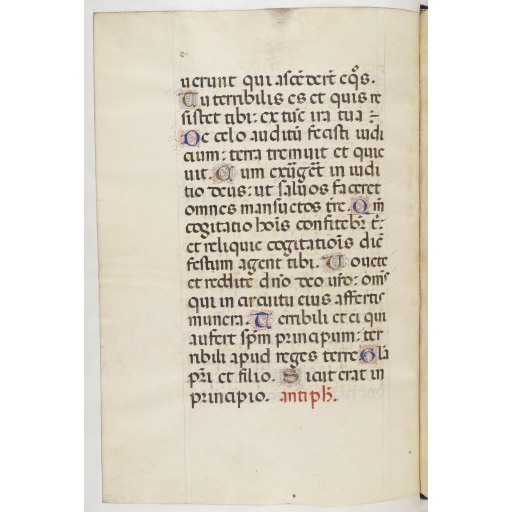 uerunt qui ascēderūt eq̄s.
Tu terribilis es et quis re
sistet tibi: ex tūc ira tua :-
De celo auditū fecisti iudi
cium: terra tremuit et quie
uit. Cum exurḡet in iudi
tio deus: ut saluos faceret
omnes mansuetos tr̄e. Qm̄
cogitatio hoīs confitebr̄ t̄:
et reliquie cogitatiōis diē
festum agent tibi. Uouete
et reddite dn̄o deo ur̄o: om̄s
qui in circuitu eius affertis
munera. Terribili et ei qui
aufert sp̄m principum: ter
ribili apud reges terre. Gl̄a
pr̄i et filio. Sicut erat in
principio. antiph̄.